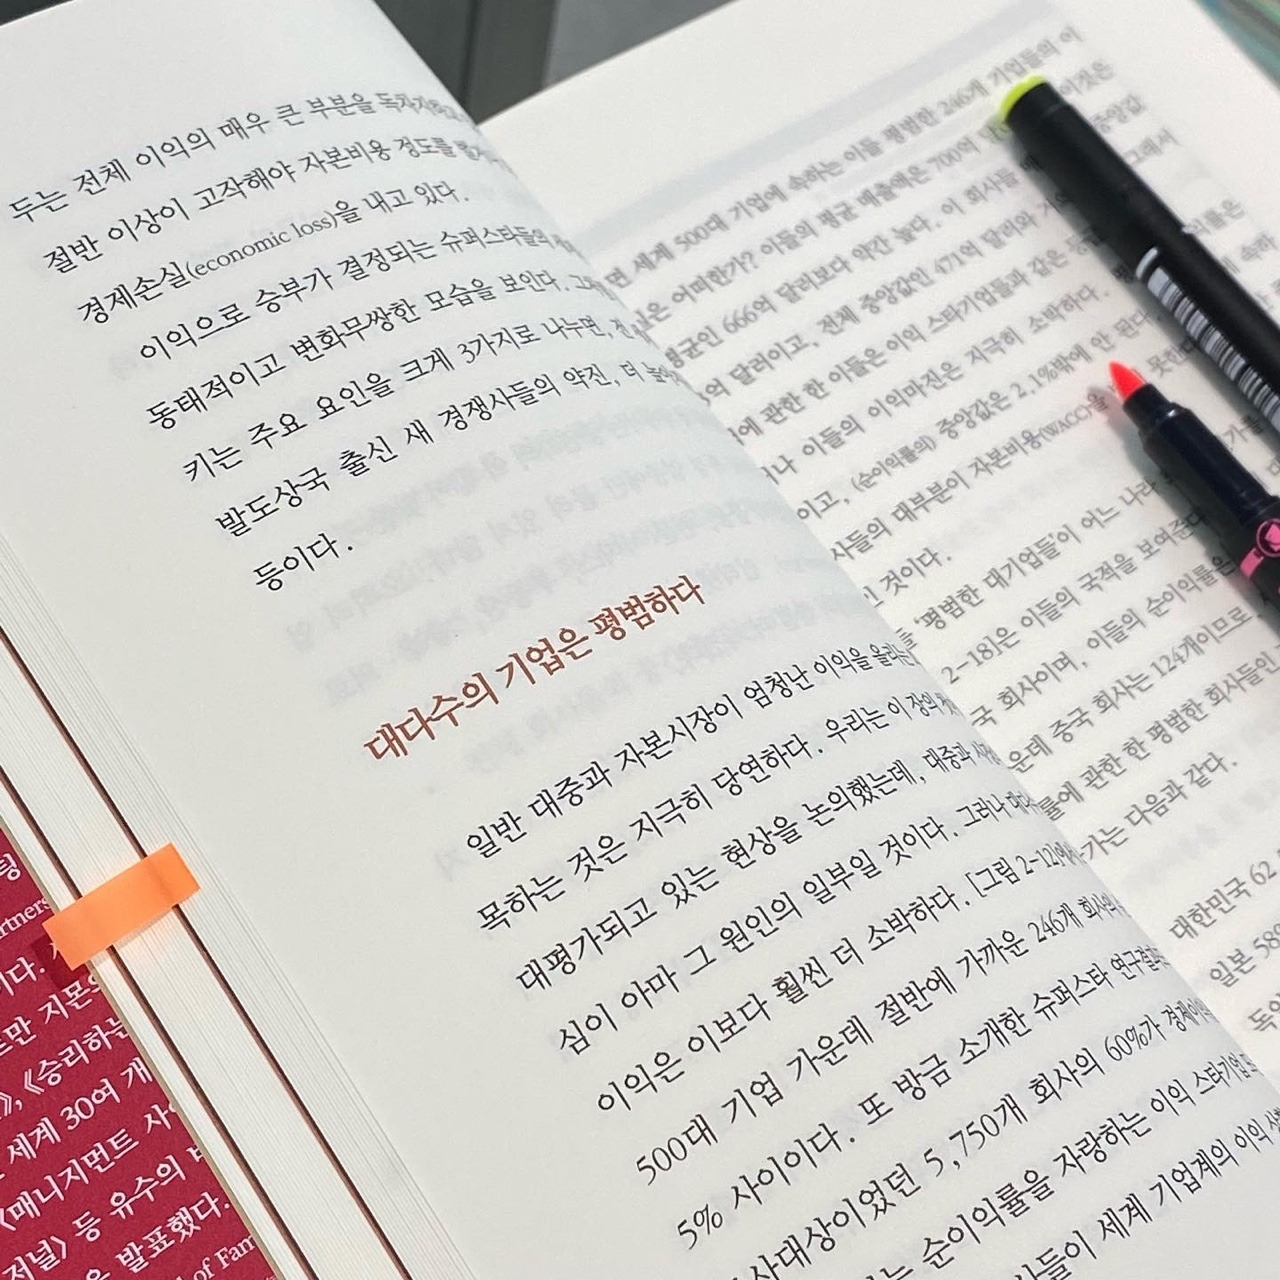 두는 전체 이익의 매우 큰 부분을
절반 이상이 고작해야 자본비용 정도를
경제손실(economic loss)을 내고 있다.
이익으로 승부가 결정되는 슈퍼스타들의
동태적이고 변화무쌍한 모습을 보인다.
키는 주요 요인을 크게 3가지로 나누면,
발도상국 출신 새 경쟁사들의 약진, 더
등이다.
대다수의 기업은 평범하다
일반 대중과 자본시장이 엄청난 이익을 올리는
목하는 것은 지극히 당연하다. 우리는 이 장의
대평가되고 있는 현상을 논의했는데, 대중과
심이 아마 그 원인의 일부일 것이다. 그러나
이익은 이보다 훨씬 더 소박하다. [그림 2-12]에서
500대 기업 가운데 절반에 가까운 246개 회사의
5% 사이이다. 또 방금 소개한 슈퍼스타 연구결과
사대상이었던 5,750개 회사의 60%가
는 순이익률을 자랑하는 이익 스타기업
사들이 세계 기업계의 이익
면 세계 500대 기업에 속하는 이들 평범한 246개 기업들의 이
은 어떠한가? 이들의 평균 매출액은 700억
평균인 666억 달러보다 약간 높다. 이 회사들
억 달러이고, 전체 중앙값인 471억 달러와
에 관한 한 이들은 이익 스타기업들과 같은
나 이들의 이익마진은 지극히 소박하다.
이고, (순이익률의) 중앙값은 2.1%밖에 안 된다.
사들의 대부분이 자본비용(WACC)을
것이다.
'평범한 대기업들'이 어느 나라
2-18]은 이들의 국적을 보여준다
국 회사이며, 이들의 순이익률은
운데 중국 회사는 124개이므로
률에 관한 한 평범한 회사들인
가는 다음과 같다.
대한민국 62
일본 58
독일
링
artners
이다.
만 지몬의
《승리하는
세계 30여 개
〈매니지먼트
저널〉 등 유수의
을 발표했다.
of Fam